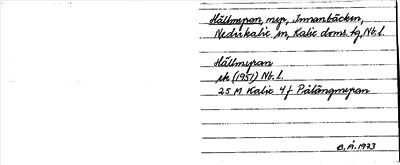 Hällmyran, myr, Innanbäcken,
Nederkalix sn, Kalix doms. tg, Nb. l.
Hällmyran
ek (1951) Nb. l.
25 M Kalix 4 f Prälängmyran
B. Å. 1973